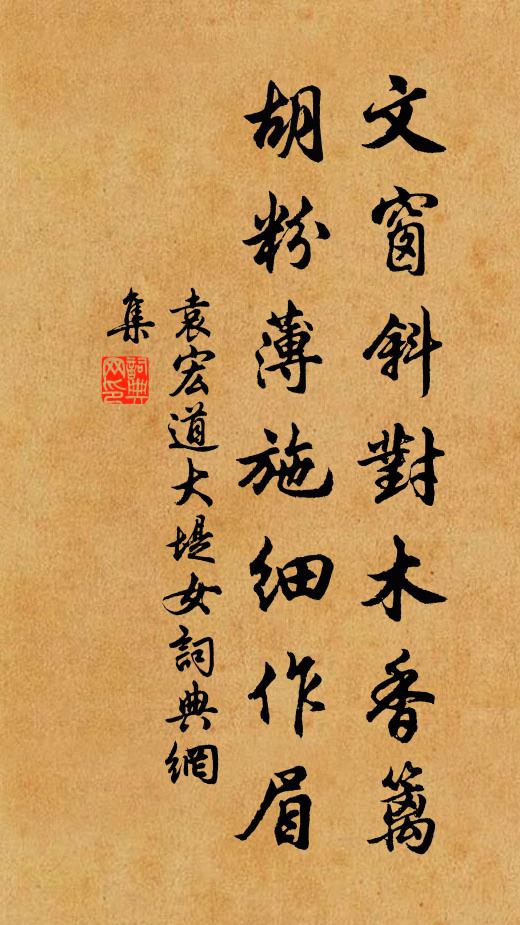 文窗斜對木香籬
胡粉薄施細作眉
袁宏道大堤女詞典網
集
詞典網印